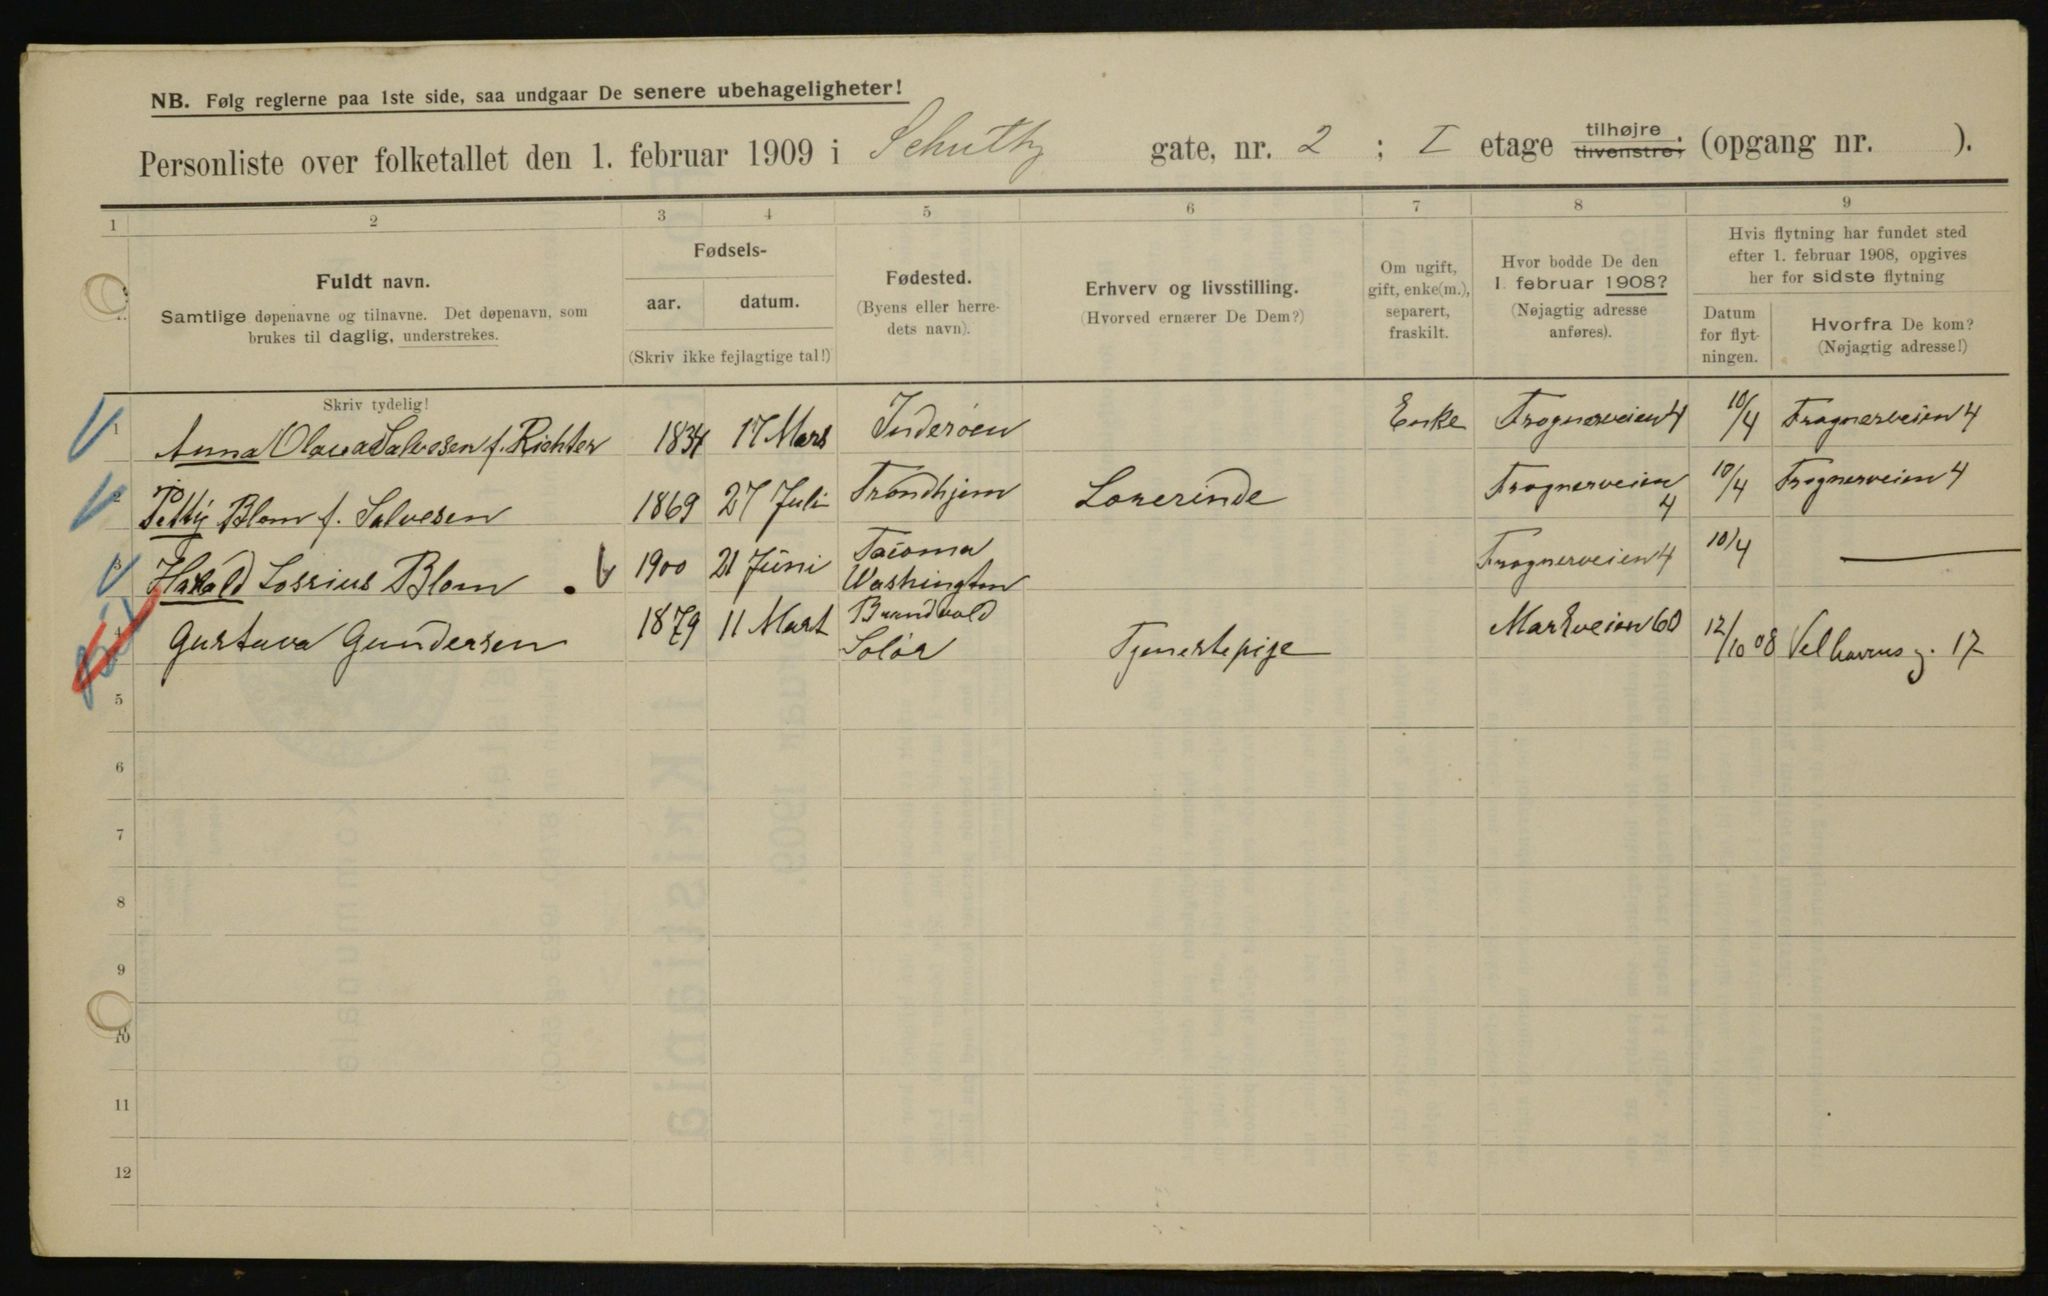 NB. Følg reglerne paa 1ste side, saa undgaar De senere ubehageligheter!
Personliste over folketallet den 1. februar 1909 i Schultz gate, nr. 2 ; I etage tilhøjre. tilvenstre; (opgang nr. ).
1 2 3 4 5 6 7 8 9
Fuldt navn.
Samtlige døpenavne og tilnavne. Det døpenavn, som
brukes til daglig, understrekes.
Fødsels-
aar. datum.
(Skriv ikke fejlagtige tal!)
Fødested.
(Byens eller herre-
dets navn).
Erhverv og livsstilling.
(Hvorved ernærer De Dem?)
Om ugift,
gift, enke(m.),
separert,
fraskilt.
Hvor bodde De den
1. februar 1908?
(Nøjagtig adresse
anføres).
Hvis flytning har fundet sted
efter 1. februar 1908, opgives
her for sidste flytning
Datum
for flyt-
ningen.
Hvorfra De kom?
(Nøjagtig adresse!)
Skriv tydelig!
1 Anna Olava Salvesen f. Richter 1834 17 Mars Inderøen Enke Frognerveien 4 10/4 Frognerveien 4
2 Petty Blom f. Salvesen 1869 27 Juli Trondhjem Lærerinde Frognerveien 4 10/4 Frognerveien 4
3 Harald Lossius Blom 1900 21 Juni Tacoma Washington Frognerveien 4 10/4 —
4 Gustava Gundersen 1879 11 Mart Brandvold Soløer Tjenestepige Markveien 60 12/10 08 Velhavns g. 17
5
6
7
8
9
10
11
12